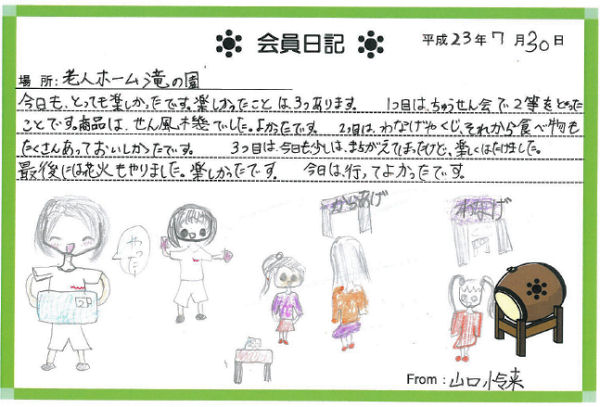 会員日記
平成23年7月30日
場所:老人ホーム滝の園
今日も、とっても楽しかったです。楽しかったことは、3つあります。 1つ目は、ちゅうせん会で2等をとった
ことです。商品は、せん風き でした。よかったです。 2つ目は、わなげやくじ、それから食べ物も
たくさんあっておいしかったです。 3つ目は、今日も少しは、まちがえてしまったけど、楽しくはたけました。
最後には花火もやりました。楽しかったです。 今日は、行ってよかったです。
やったー
からあげ
わなげ
From:山口 来